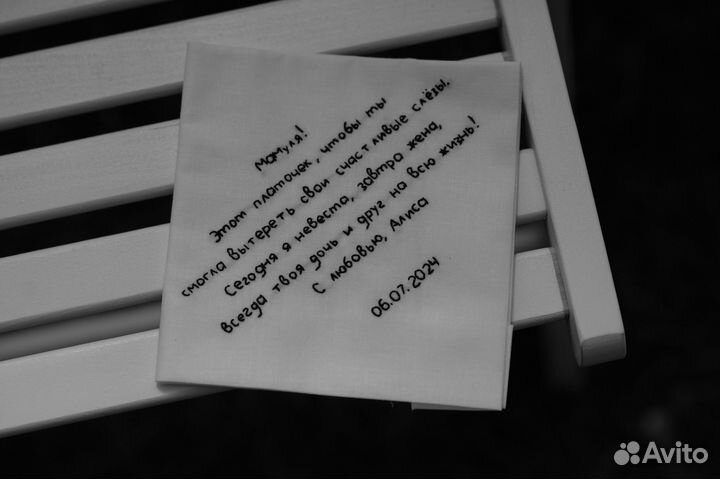 Мамуля!
Этот платочек, чтобы ты
смогла вытереть свои счастливые слёзы.
Сегодня я невеста, завтра жена,
всегда твоя дочь и друг на всю жизнь!
С любовью, Алиса
06.07.2024
Avito